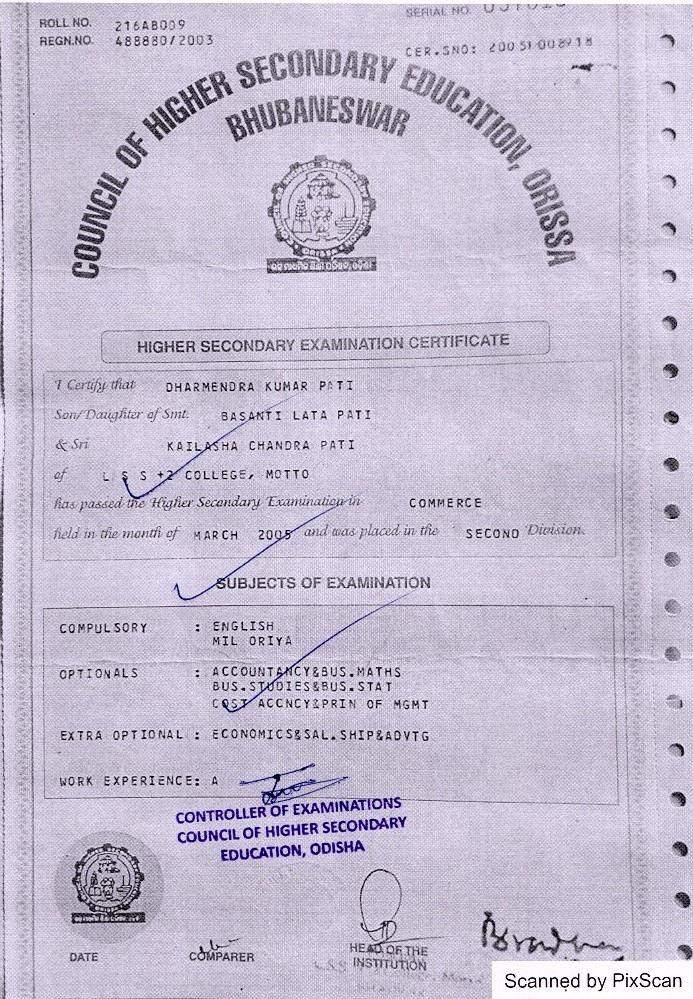 ROLL NO. 216AB009
REGN.NO. 488880/2003
SERIAL NO.
CER.SNO: 20051008918
COUNCIL OF HIGHER SECONDARY EDUCATION, ORISSA
BHUBANESWAR
HIGHER SECONDARY EXAMINATION CERTIFICATE
I Certify that DHARMENDRA KUMAR PATI
Son/Daughter of Smt. BASANTI LATA PATI
& Sri KAILASHA CHANDRA PATI
of L S S +2 COLLEGE, MOTTO
has passed the Higher Secondary Examination in COMMERCE
held in the month of MARCH 2005 and was placed in the SECOND Division.
SUBJECTS OF EXAMINATION
COMPULSORY : ENGLISH
MIL ORIYA
OPTIONALS : ACCOUNTANCY&BUS.MATHS
BUS.STUDIES&BUS.STAT
COST ACCNCY&PRIN OF MGMT
EXTRA OPTIONAL : ECONOMICS&SAL.SHIP&ADVTG
WORK EXPERIENCE: A
CONTROLLER OF EXAMINATIONS
COUNCIL OF HIGHER SECONDARY
EDUCATION, ODISHA
DATE
COMPARER
HEAD OF THE
INSTITUTION
Scanned by PixScan